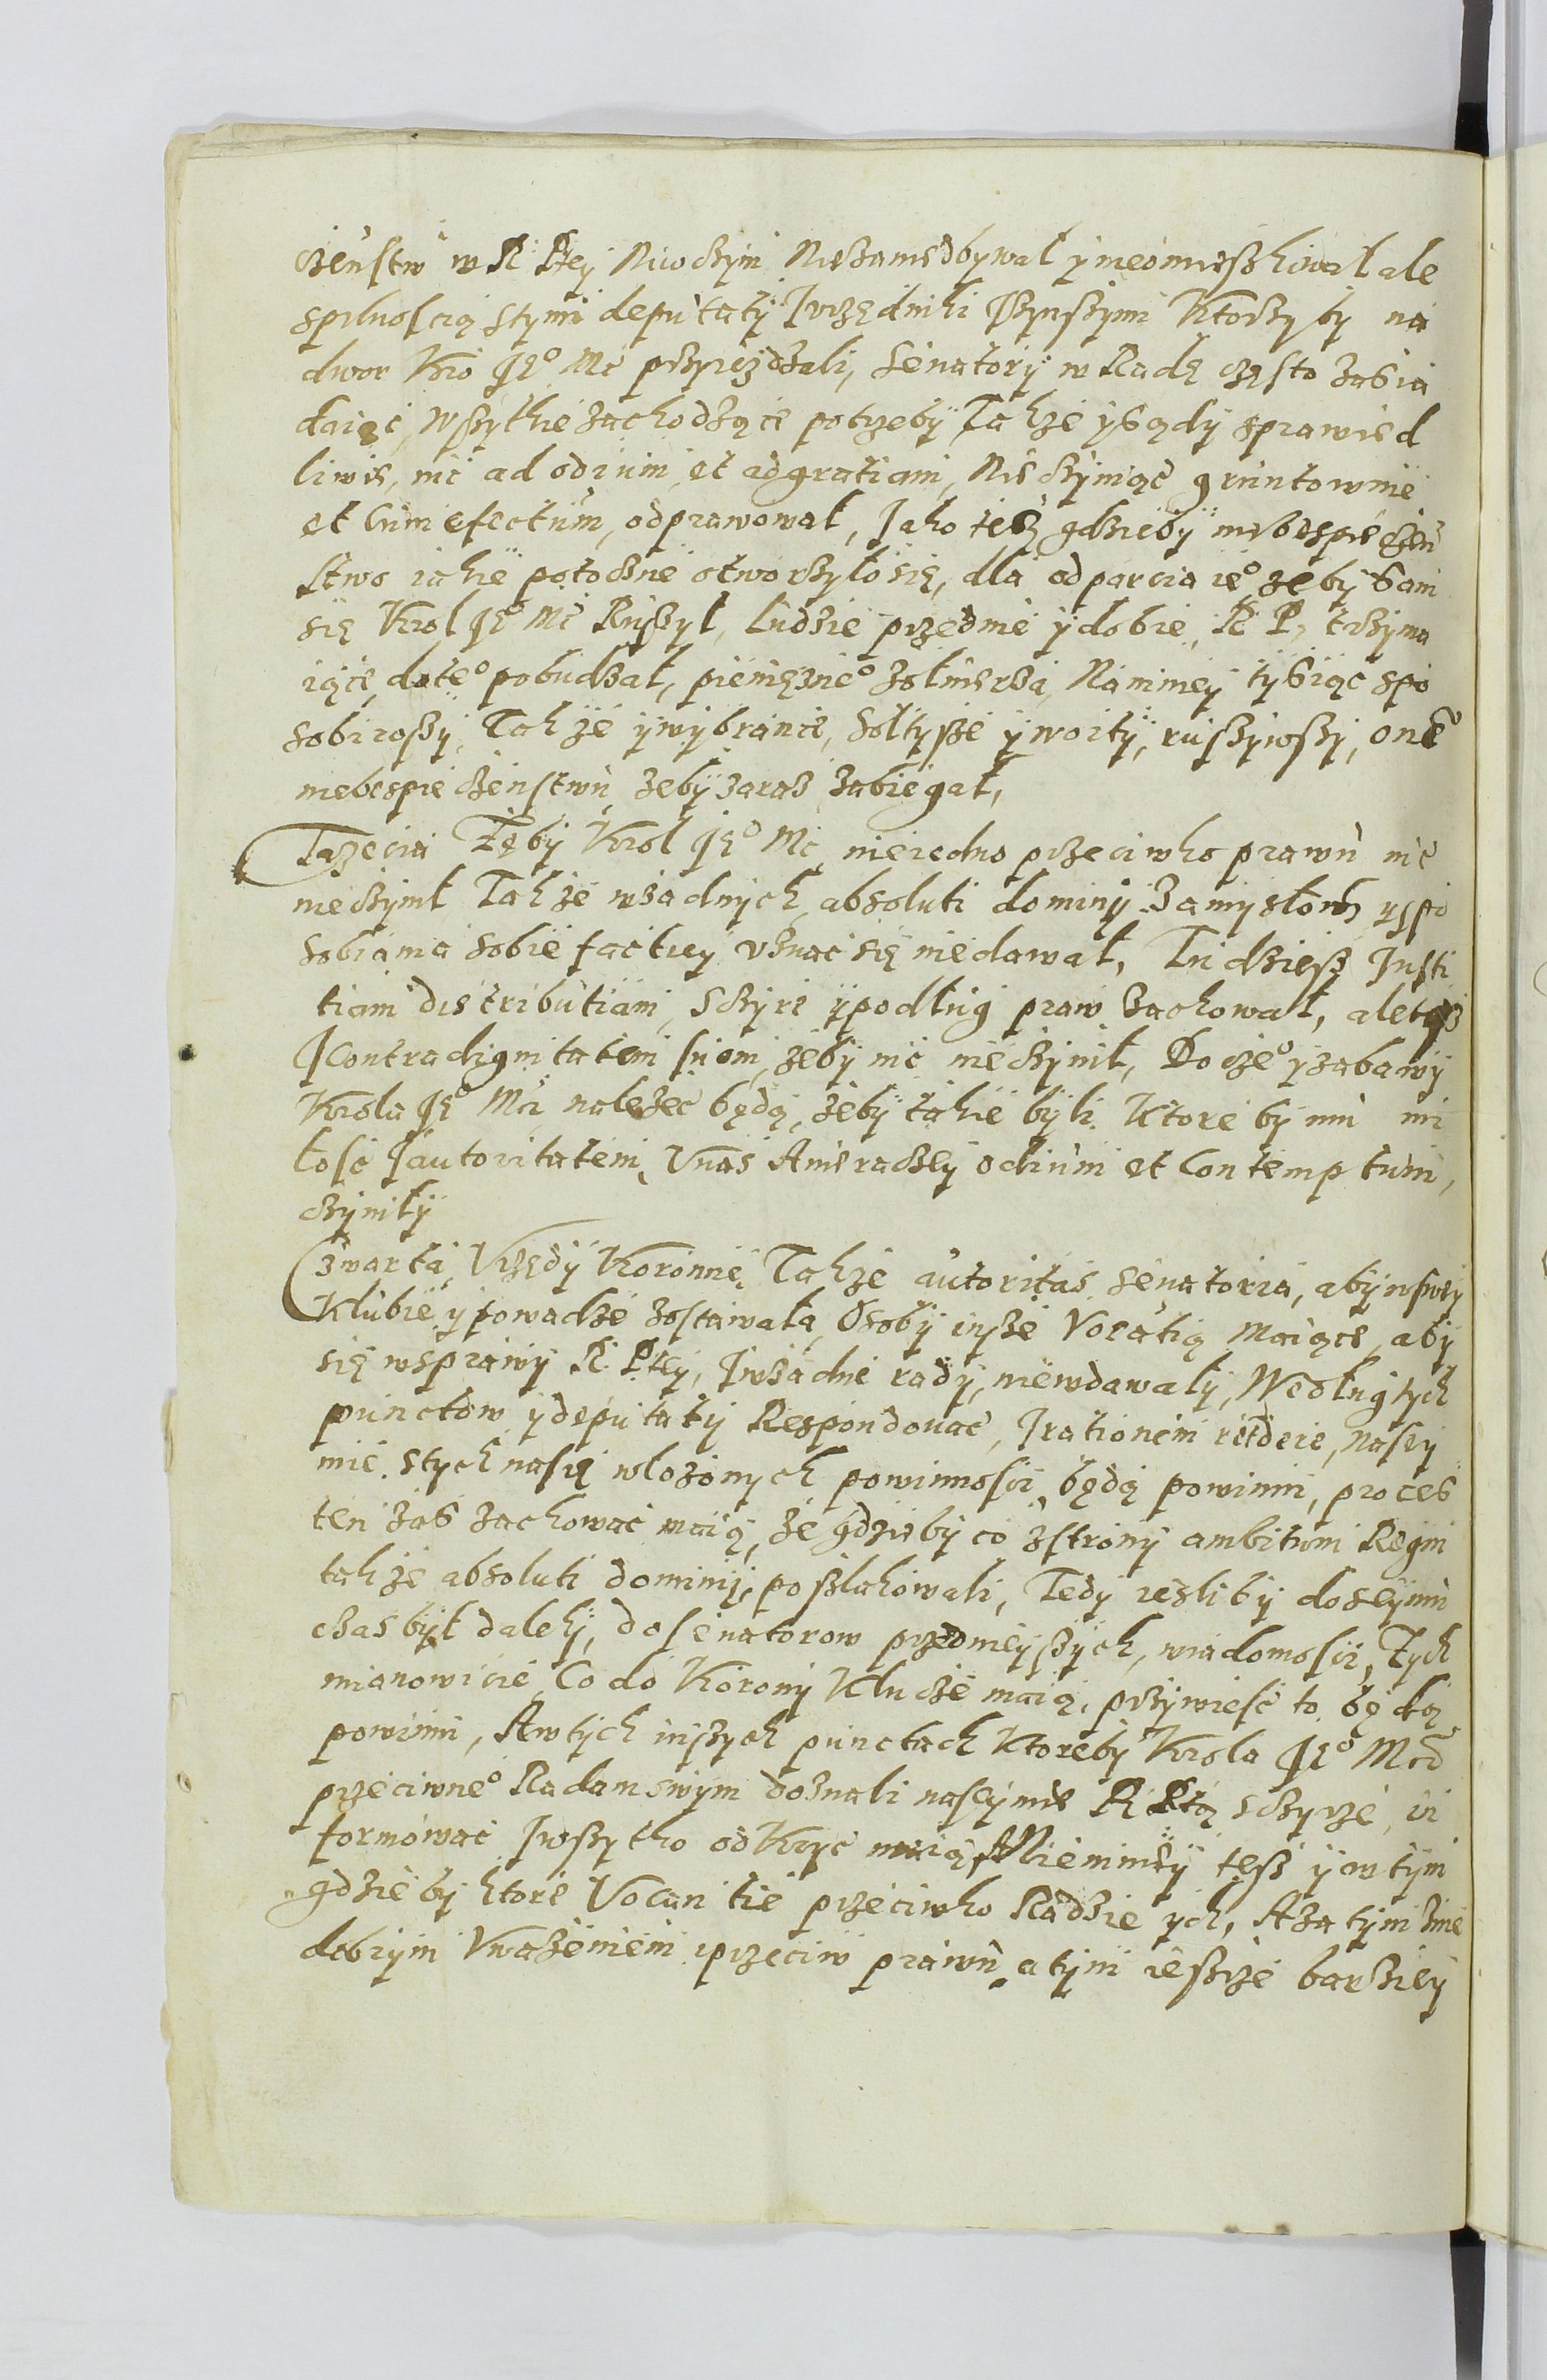 czenstw w R Ptey Niwczym Niezaniedbywał y nieomieszkiwał ale
spilnoscią stymi deputaty Jurzędniki Jszynszymi Ktorzy by na
dwor Kro Je° Mc przyiezdzali, Senatory w Radę często zasia
daiąc, Wszytkie zachodzące potrzeby Takze ysądy sprawied
liwie, nic ad odium et adgratiam, Nie czyniąc gruntownie
et cum efectum, odprawował, Jako tesz gdzieby niebespieczen
stwo iakie potoczne otworzyło się, dla odparcia ie° zeby sam
się Krol Je° Mc Ruszył, Ludzie przednie ydobre, Re P. trzyma
iące, dote° pobudzał, pienięzne° zołnierza, Namniey tysiąc spo
sobiwszy, Takze ywybrance, Sołtysze ywoity, ruszywszy, one°
niebespieczenstwu zeby zaraz zabiegał,
Trzecia Zeby Krol Je° Mc, nieiedno przeciwko prawu nic
nieczynił Takze wzadnych absoluti dominy Zamysłow yspo
sobiania sobie factiey uznac się niedawał, Tudziesz Justi
tiam distributiam, Sczyre ypodług praw zachował, ale tesz
Jcontradignitatem suam, zeby nic nieczynił, Docze° yzabawy
Krola Je° Mci nalezec będą, zeby takie byli Ktore by mu mi
łosc Jautoritatem, Unas Anieraczey odium et Contemptum,
czyniły
Czwarta, Vrzędy Koronne, Takze autoritas senatoria, aby wswey
Klubie y powadze zostawała, Osoby insze Vocatią maiące, aby
się wsprawy R. Ptey, Jwzadne rady, niewdawały, Wedlug tych
punctow ydeputaty Respondowac, Jrationem reddere, nasey
mie, stych nasię włozonych powinnosci, będą powinni, proces
ten zas zachowac maią, ze gdzieby co zstrony ambitum Regni
takze absoluti dominy, poszlakowali, Tedy iesliby doseymu
czas był daleky, do senatorow przednieyszych, wiadomosci, Tych
mianowicie, Co do Korony Klucze maią, przywiesc to będą
powinni, Awtych inszych punctach Ktoreby Krola Je° Mcz
przeciwne° Radam swym doznali naseymie R Ptą sczyrze, in
formowac Jwszytko odKryc maią, ANiemniey tesz y wtym
gdzieby ktore Vocantie przeciwko Radzie ych, Azatym znie
dobrym Uwazeniem przeciw prawu, a tym ieszcze barziey